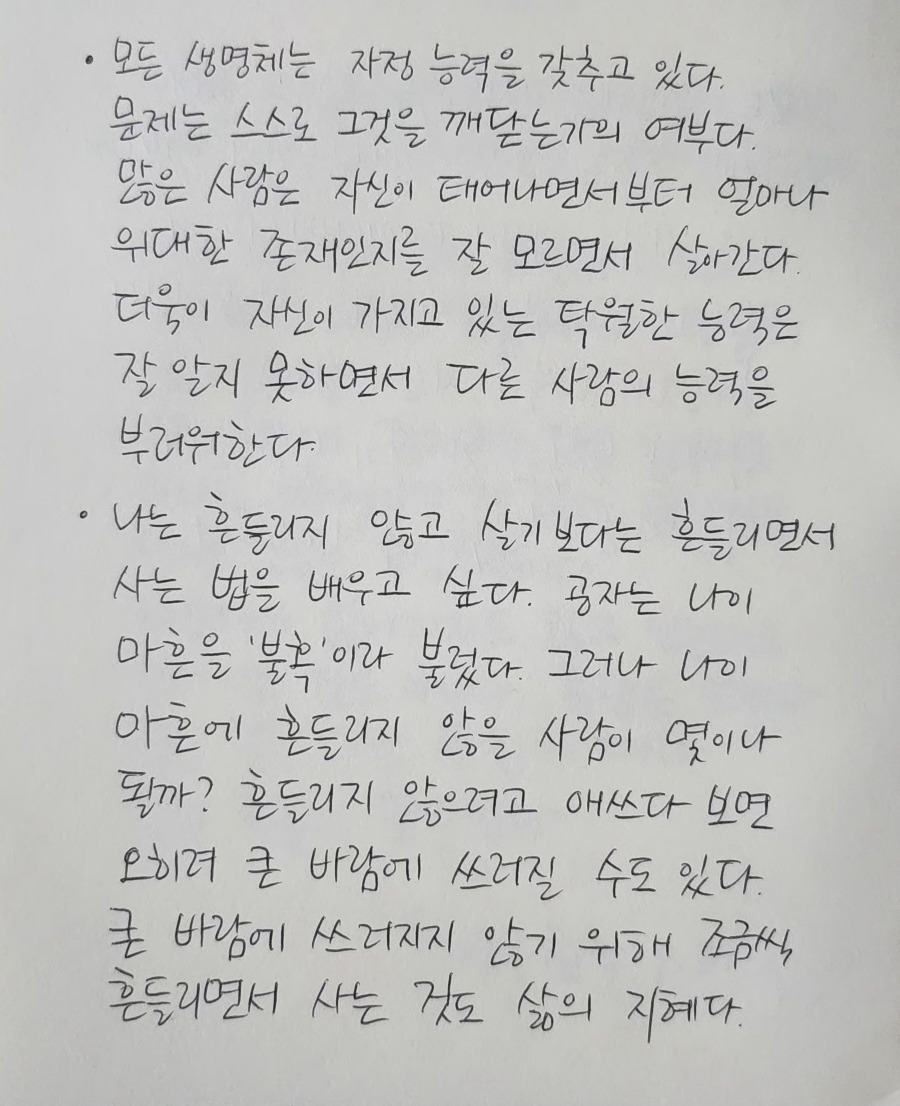 • 모든 생명체는 자정 능력을 갖추고 있다.
문제는 스스로 그것을 깨닫는가의 여부다.
많은 사람은 자신이 태어나면서부터 얼마나
위대한 존재인지를 잘 모르면서 살아간다.
더욱이 자신이 가지고 있는 탁월한 능력은
잘 알지 못하면서 다른 사람의 능력을
부러워한다.
• 나는 흔들리지 않고 살기보다는 흔들리면서
사는 법을 배우고 싶다. 공자는 나이
마흔을 '불혹'이라 불렀다. 그러나 나이
마흔에 흔들리지 않을 사람이 몇이나
될까? 흔들리지 않으려고 애쓰다 보면
오히려 큰 바람에 쓰러질 수도 있다.
큰 바람에 쓰러지지 않기 위해 조금씩
흔들리면서 사는 것도 삶의 지혜다.